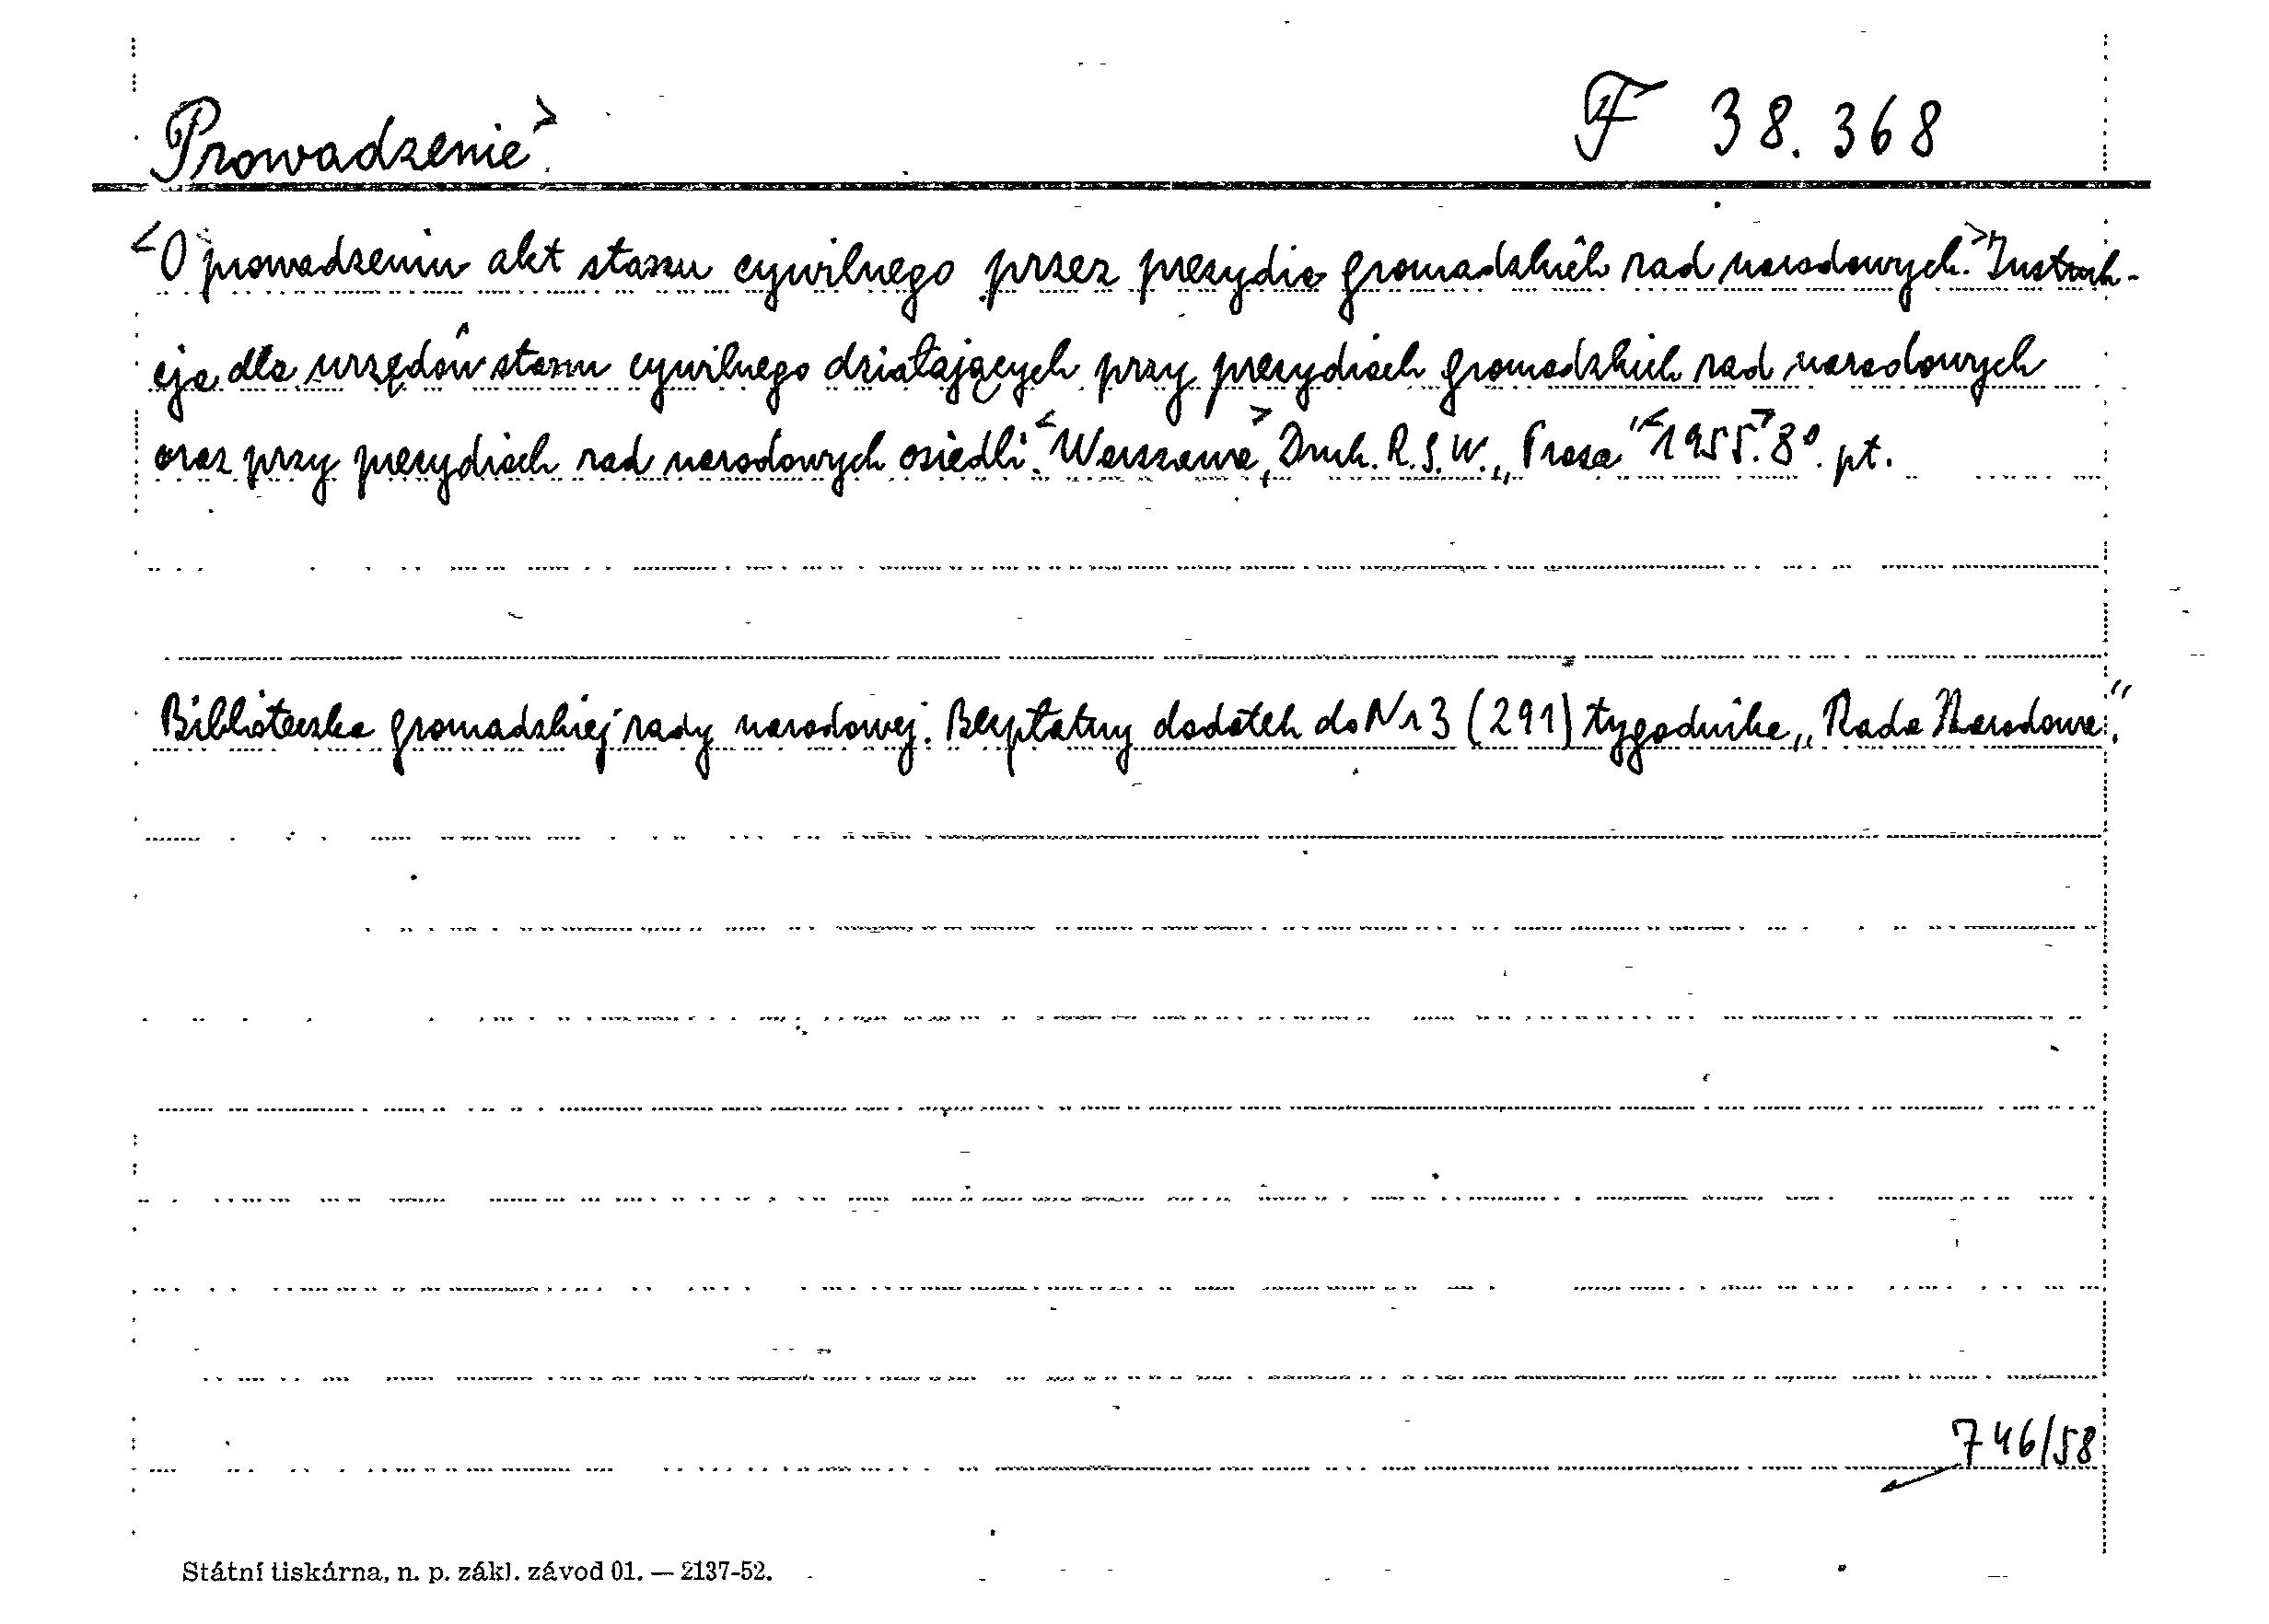 Prowadzenie> F 38.368
<O prowadzeniu akt stanu cywilnego przez prezydia gromadzkich rad narodowych.> Instruk-
cja dla urzędów stanu cywilnego działających przy prezydiach gromadzkich rad narodowych
oraz przy prezydiach rad narodowych osiedli. <Warszawa>, Druk. R.S.W. „Prasa" <1955.> 8°. pt.
Biblioteczka gromadzkiej rady narodowej. Bezpłatny dodatek do Nr 3 (291) tygodnika „Rada Narodowa".
746/58
Státní tiskárna, n. p. zákl. závod 01. — 2137-52.